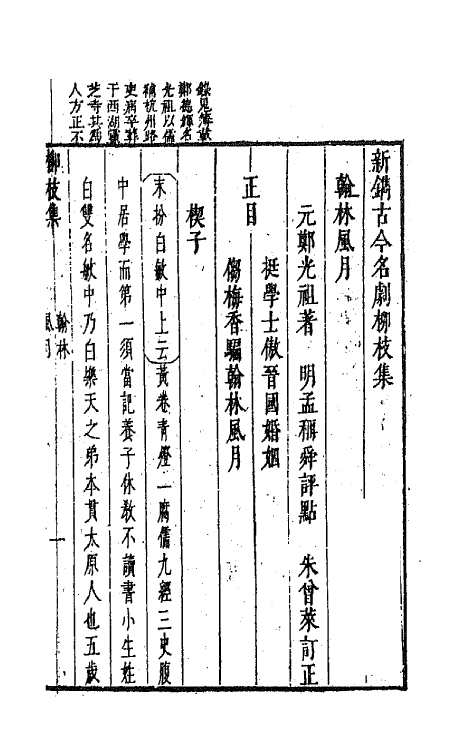 錄鬼簿載
鄭德輝名
光祖以儒
補杭州路
吏病卒葬
于西湖靈
芝寺其為
人方正不
新鐫古今名劇柳枝集
翰林風月
元鄭光祖著 明孟稱舜評點 朱曾萊訂正
正目
挺學士傲晉國婚姻
㑳梅香騙翰林風月
楔子
末扮白敏中上云黃卷青燈一腐儒九經三史腹
中居學而第一須當記養子休教不讀書小生姓
白雙名敏中乃白樂天之弟本貫太原人也五歲
柳枝集 翰林風月 一